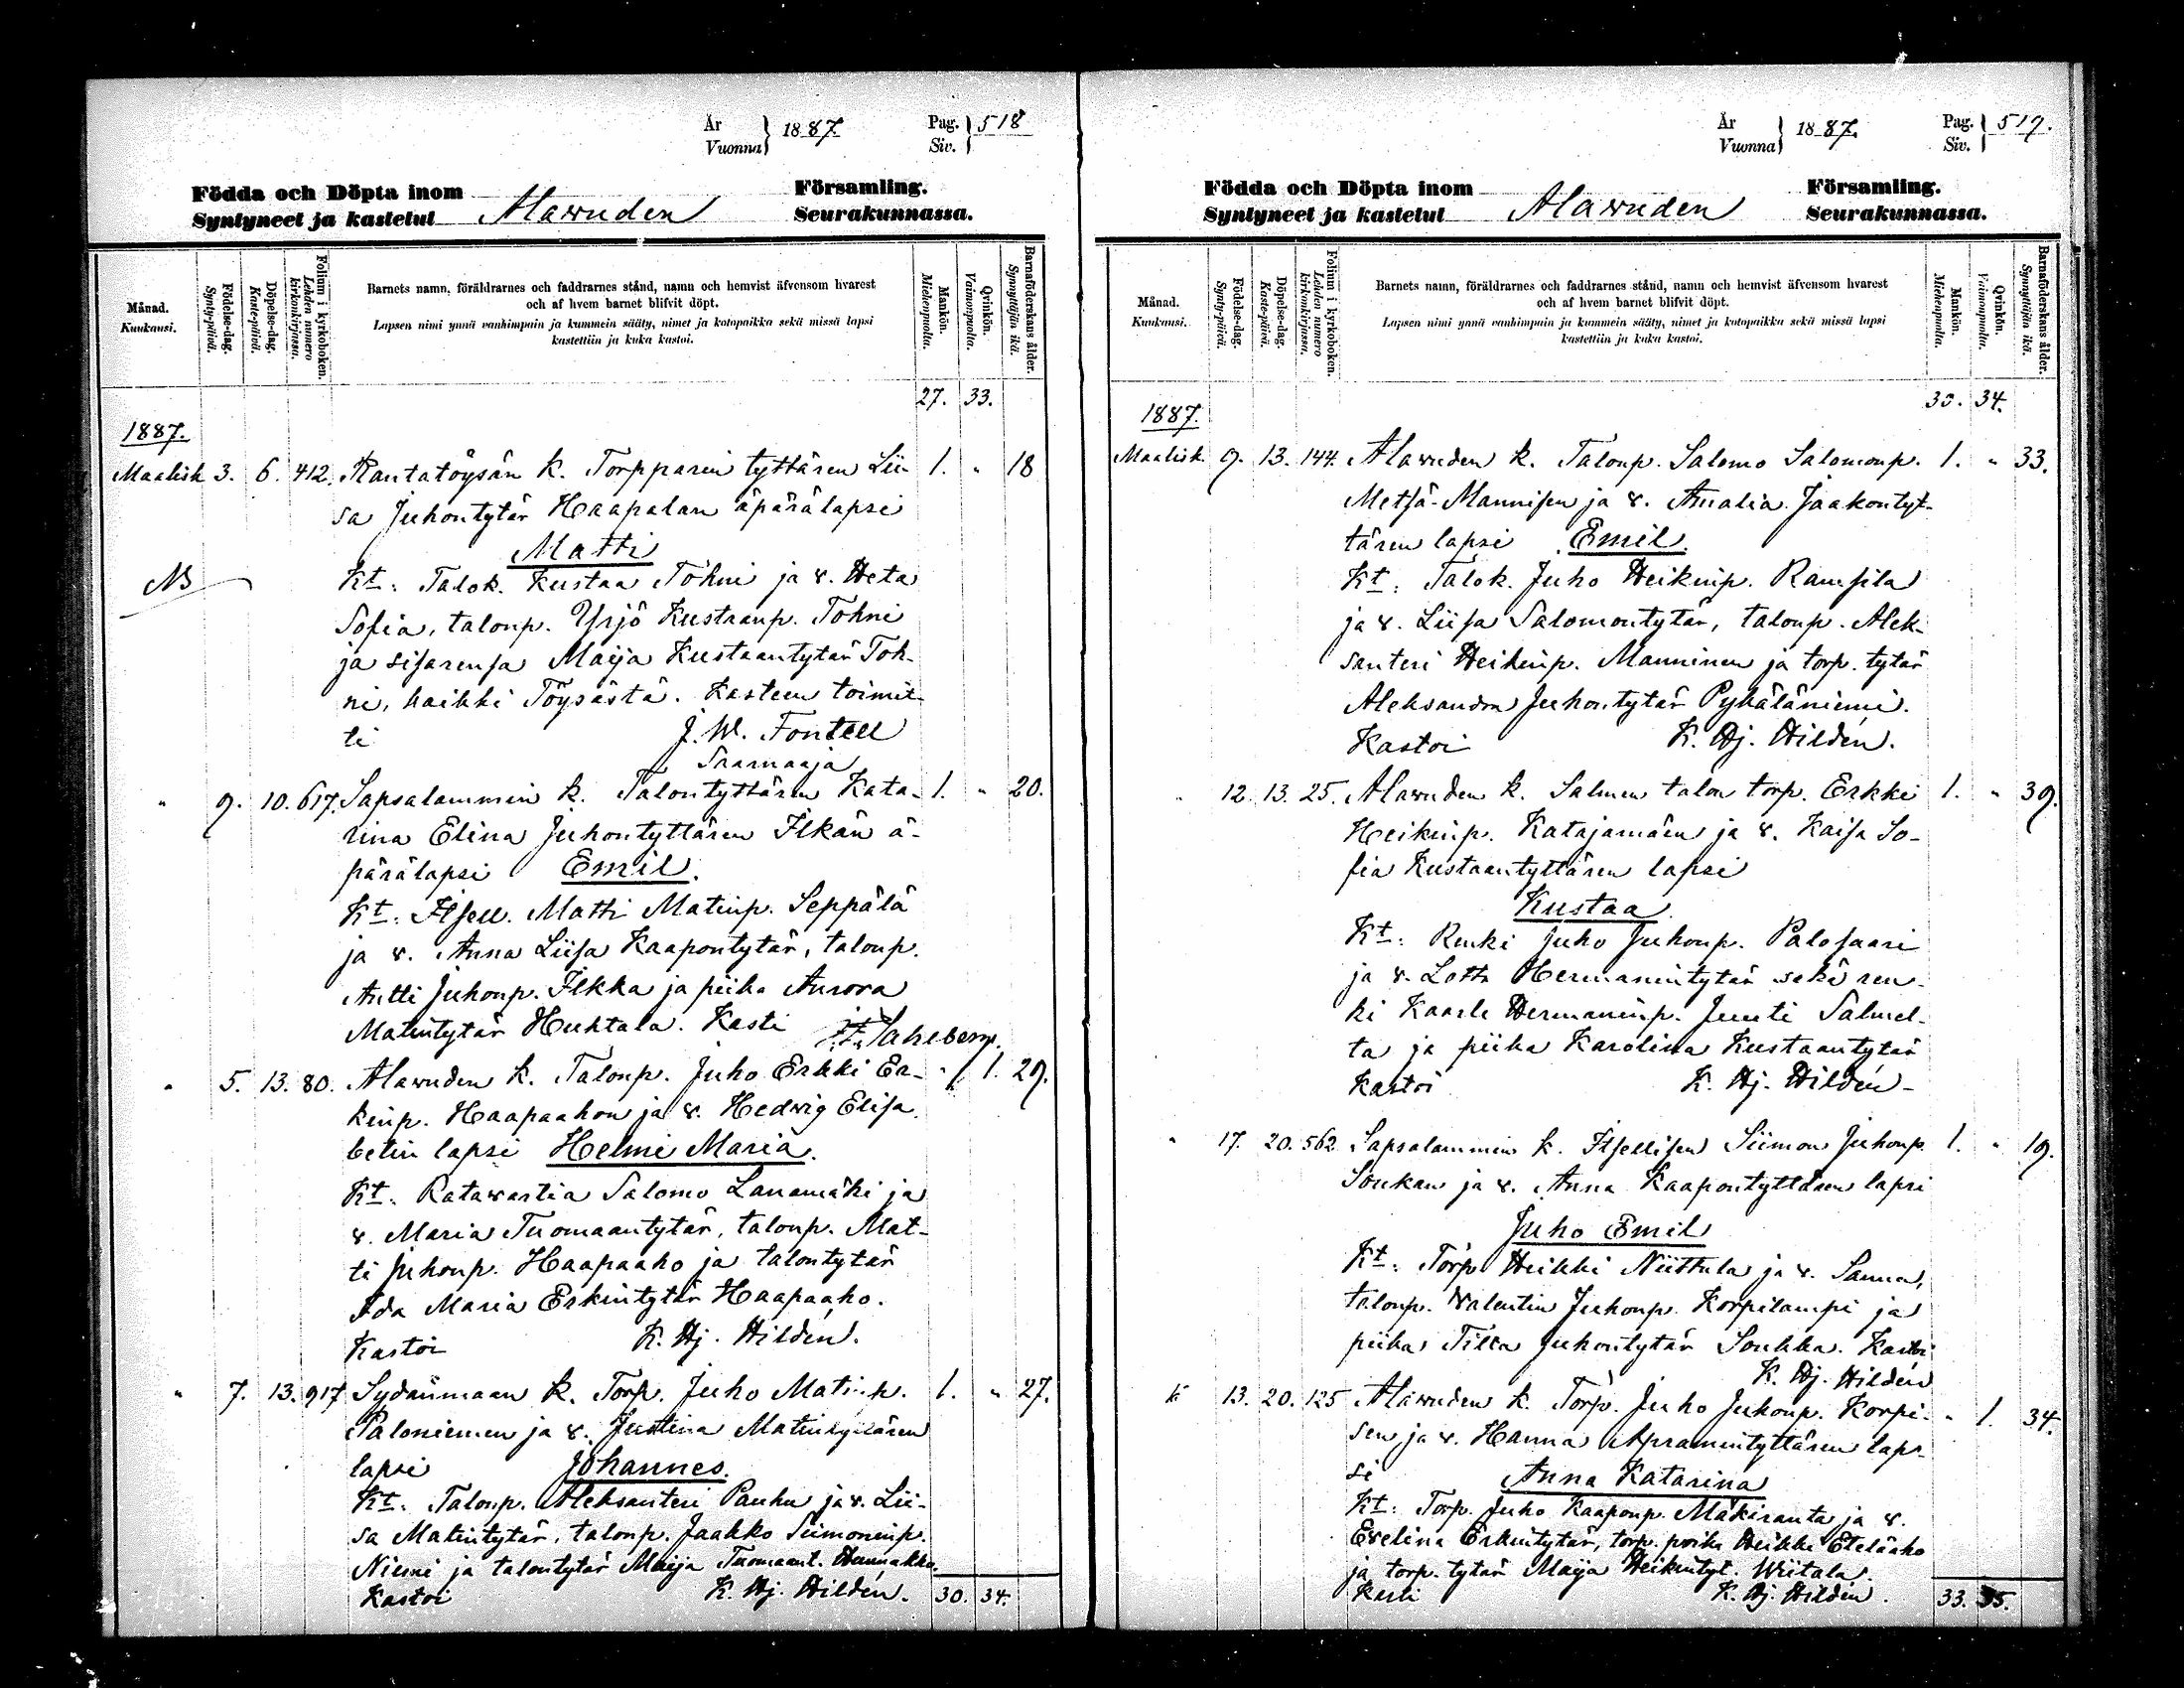 År
Vuonna } 1887. Pag.
Siv. } 518
Födda och Döpta inom Församling.
Syntyneet ja kastetut Alawuden Seurakunnassa.
Månad.
Kuukausi.
Födelse-dag.
Synty-päivä.
Döpelse-dag.
Kaste-päivä.
Folium i kyrkoboken.
Lehden numero
kirkonkirjassa.
Barnets namn, föräldrarnes och faddrarnes stånd, namn och hemvist äfvensom hvarest
och af hvem barnet blifvit döpt.
Lapsen nimi ynnä vanhimpain ja kummein sääty, nimet ja kotopaikka sekä missä lapsi
kastettiin ja kuka kastoi.
Mankön.
Miehenpuolia.
Qvinkön.
Vaimonpuolia.
Barnaföderskans ålder.
Synnyttäjän ikä.
27. 33.
1887.
Maalisk 3. 6. 412. Rantatöysän k. Torpparin tyttären Lii- 1. " 18
sa Juhontytär Haapalan äpärälapsi
Matti
NB Kt: Talok. Kustaa Tohni ja v. Heta
Sofia, talonp. Yrjö Kustaanp. Tohni
ja sisarensa Maija Kustaantytär Toh-
ni, kaikki Töysästä. Kasteen toimit-
ti J. W. Fontell
Saarnaaja
" 9. 10. 617. Sapsalammin k. Talontyttären Kata- 1. " 20.
rina Elina Juhontyttären Ilkän ä-
pärälapsi Emil.
Kt: Itsell. Matti Matinp. Seppälä
ja v. Anna Liisa Kaapontytär, talonp.
Antti Juhonp. Ilkka ja piika Aurora
Matintytär Huhtala. Kasti
" 5. 13. 80. Alawuden k. Talonp. Juho Erkki Er- " 1. 29.
kinp. Haapaahon ja v. Hedvig Elisa
betin lapsi Helmi Maria.
Kt: Ratavartia Salomo Lanamäki ja
v. Maria Tuomaantytär, talonp. Mat-
ti Juhonp. Haapaaho ja talontytär
Ida Maria Erkintytär Haapaaho.
Kastoi K. Hj. Hildén.
" 7. 13. 917 Sydänmaan k. Torp. Juho Matinp. 1. " 27.
Paloniemen ja v. Justina Matintyttären
lapsi Johannes.
Kt: Talonp. Aleksanteri Pauhu ja v. Lii-
sa Matintytär, talonp. Jaakko Siimoninp.
Niemi ja talontytär Maija Tuomaant. Hannukka.
Kastoi K. Hj. Hildén. 30. 34.
År
Vuonna } 1887. Pag.
Siv. } 519.
Födda och Döpta inom Församling.
Syntyneet ja kastetut Alawuden Seurakunnassa.
Månad.
Kuukausi.
Födelse-dag.
Synty-päivä.
Döpelse-dag.
Kaste-päivä.
Folium i kyrkoboken.
Lehden numero
kirkonkirjassa.
Barnets namn, föräldrarnes och faddrarnes stånd, namn och hemvist äfvensom hvarest
och af hvem barnet blifvit döpt.
Lapsen nimi ynnä vanhimpain ja kummein sääty, nimet ja kotopaikka sekä missä lapsi
kastettiin ja kuka kastoi.
Mankön.
Miehenpuolia.
Qvinkön.
Vaimonpuolia.
Barnaföderskans ålder.
Synnyttäjän ikä.
30. 34.
1887.
Maalisk. 9. 13. 144. Alawuden k. Talonp. Salomo Salomonp. 1. " 33.
Metsä-Mannisen ja v. Amalia Jaakontyt-
tären lapsi Emil.
Kt: Talok. Juho Heikinp. Ransila
ja v. Liisa Salomontytär, talonp. Alek-
santeri Heikinp. Manninen ja torp. tytär
Aleksandra Juhontytär Pykäläniemi.
Kastoi K. Hj. Hildén.
" 12. 13. 25. Alawuden k. Salmen talon torp. Erkki 1. " 39.
Heikinp. Katajamäen ja v. Kaisa So-
fia Kustaantyttären lapsi
Kustaa.
Kt: Renki Juho Juhonp. Palosaari
ja v. Lotta Hermannintytär sekä ren-
ki Kaarle Hermaninp. Juuti Salmel-
ta ja piika Karolina Kustaantytär
Kastoi K. Hj. Hildén
" 17. 20. 562 Sapsalammin k. Itsellisen Siimon Juhonp. 1. " 19.
Soukan ja v. Anna Kaapontyttären lapsi
Juho Emil
Kt: Torp. Heikki Niittula ja v. Sanna,
talonp. Valentin Juhonp. Korpilampi ja
piika Tilta Juhontytär Soukka. Kastoi
K. Hj. Hildén
" 13. 20. 125 Alawuden k. Torp. Juho Juhonp. Korpi- " 1. 34.
sen ja v. Hanna Apramintyttären lap-
si Anna Katarina
Kt: Torp. Juho Kaaponp. Mäkiranta ja v.
Evelina Erkintytär, torp. poika Heikki Eteläaho
ja torp. tytär Maija Heikintyt. Wiitala.
Kasti K. Hj. Hildén. 33. 35.